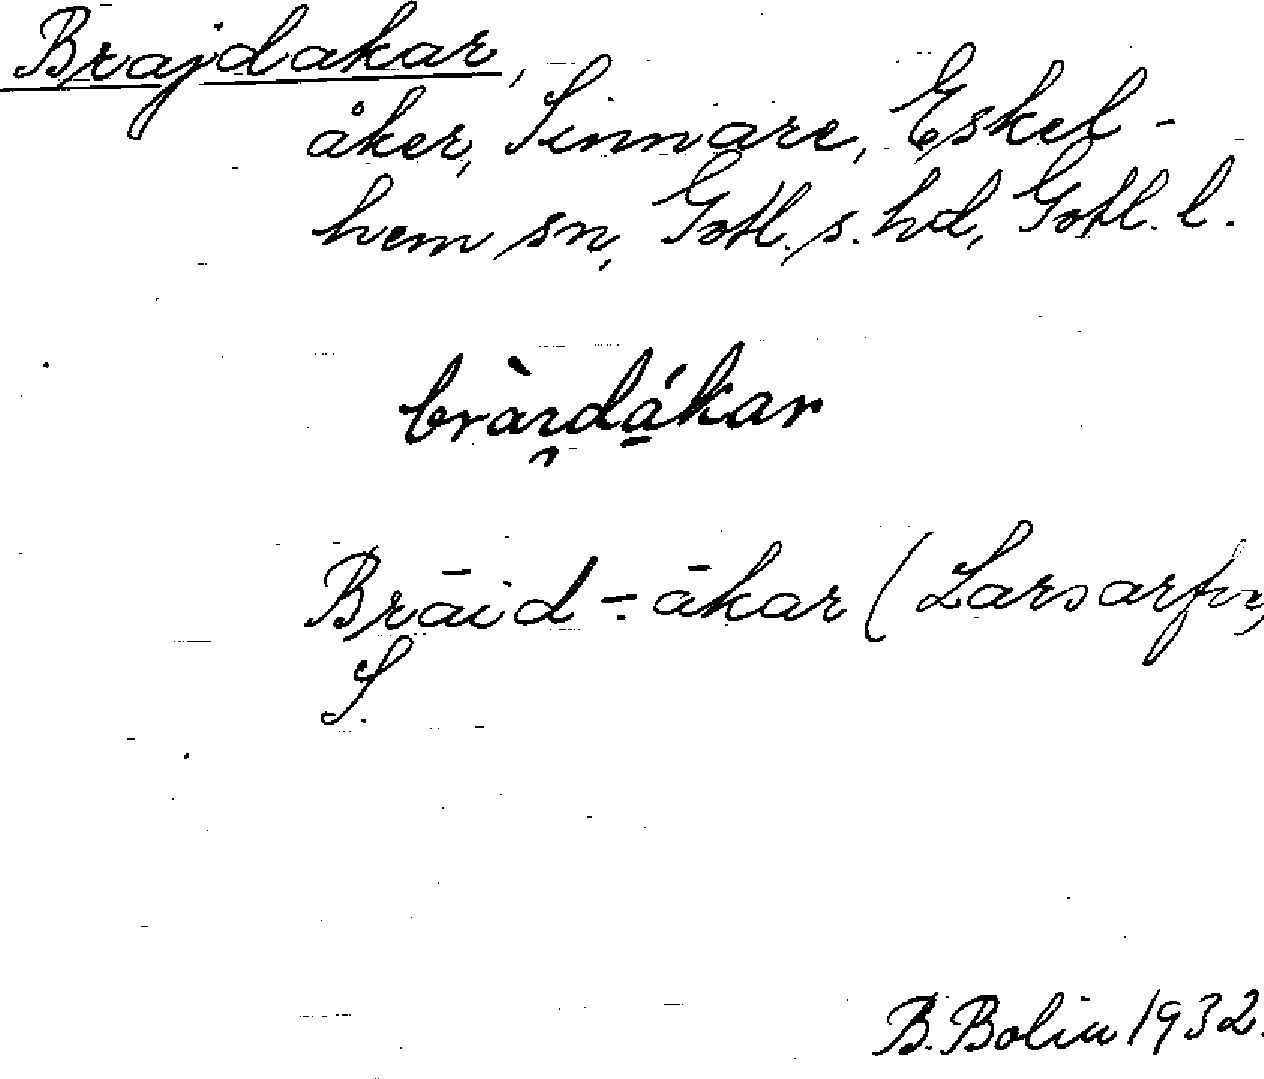 Brajdakar,
åker, Sinnare, Eskel-
hem sn, Gotl. s. hd, Gotl. l.
bràɪ̯dá̱kar
Brāid-ākar (Larsarfve,
S.
B. Bolin 1932.